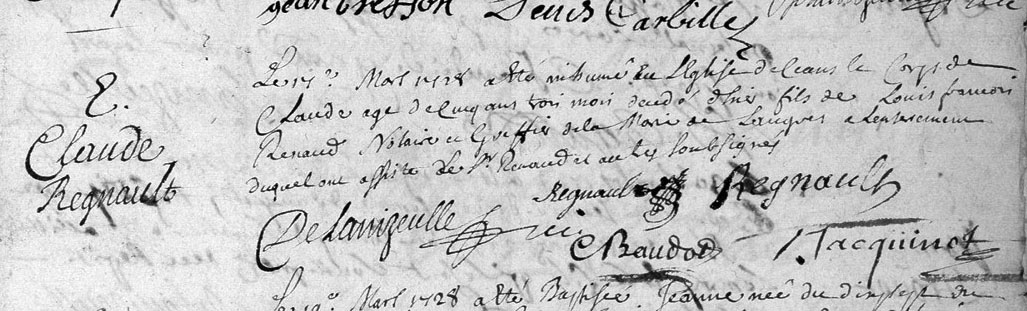 Jean Cresson Denis Carbille
E.
Claude
Regnault
Le 17e Mars 1728 a été inhumé en L'Eglise de ceans le Corps de
Claude age de cinq ans trois mois decedé d'hier fils de Louis francois
Renaud Notaire et Greffier de la de Langres a L'enterrement
duquel ont assisté le Sr Renaud et autres soubsignés
Regnault Regnault
De Lanizeulle
C Baudot J Jacquinot
Le 19e Mars 1728 a été Baptisée Jeanne née du dixsept du